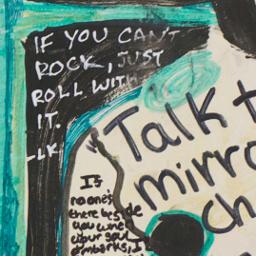 IF YOU CAN'T
ROCK, JUST
ROLL WITH
IT.
-LK
Talk t
mirro
ch
If
no one's
there beside
you when
your soul
embarks,